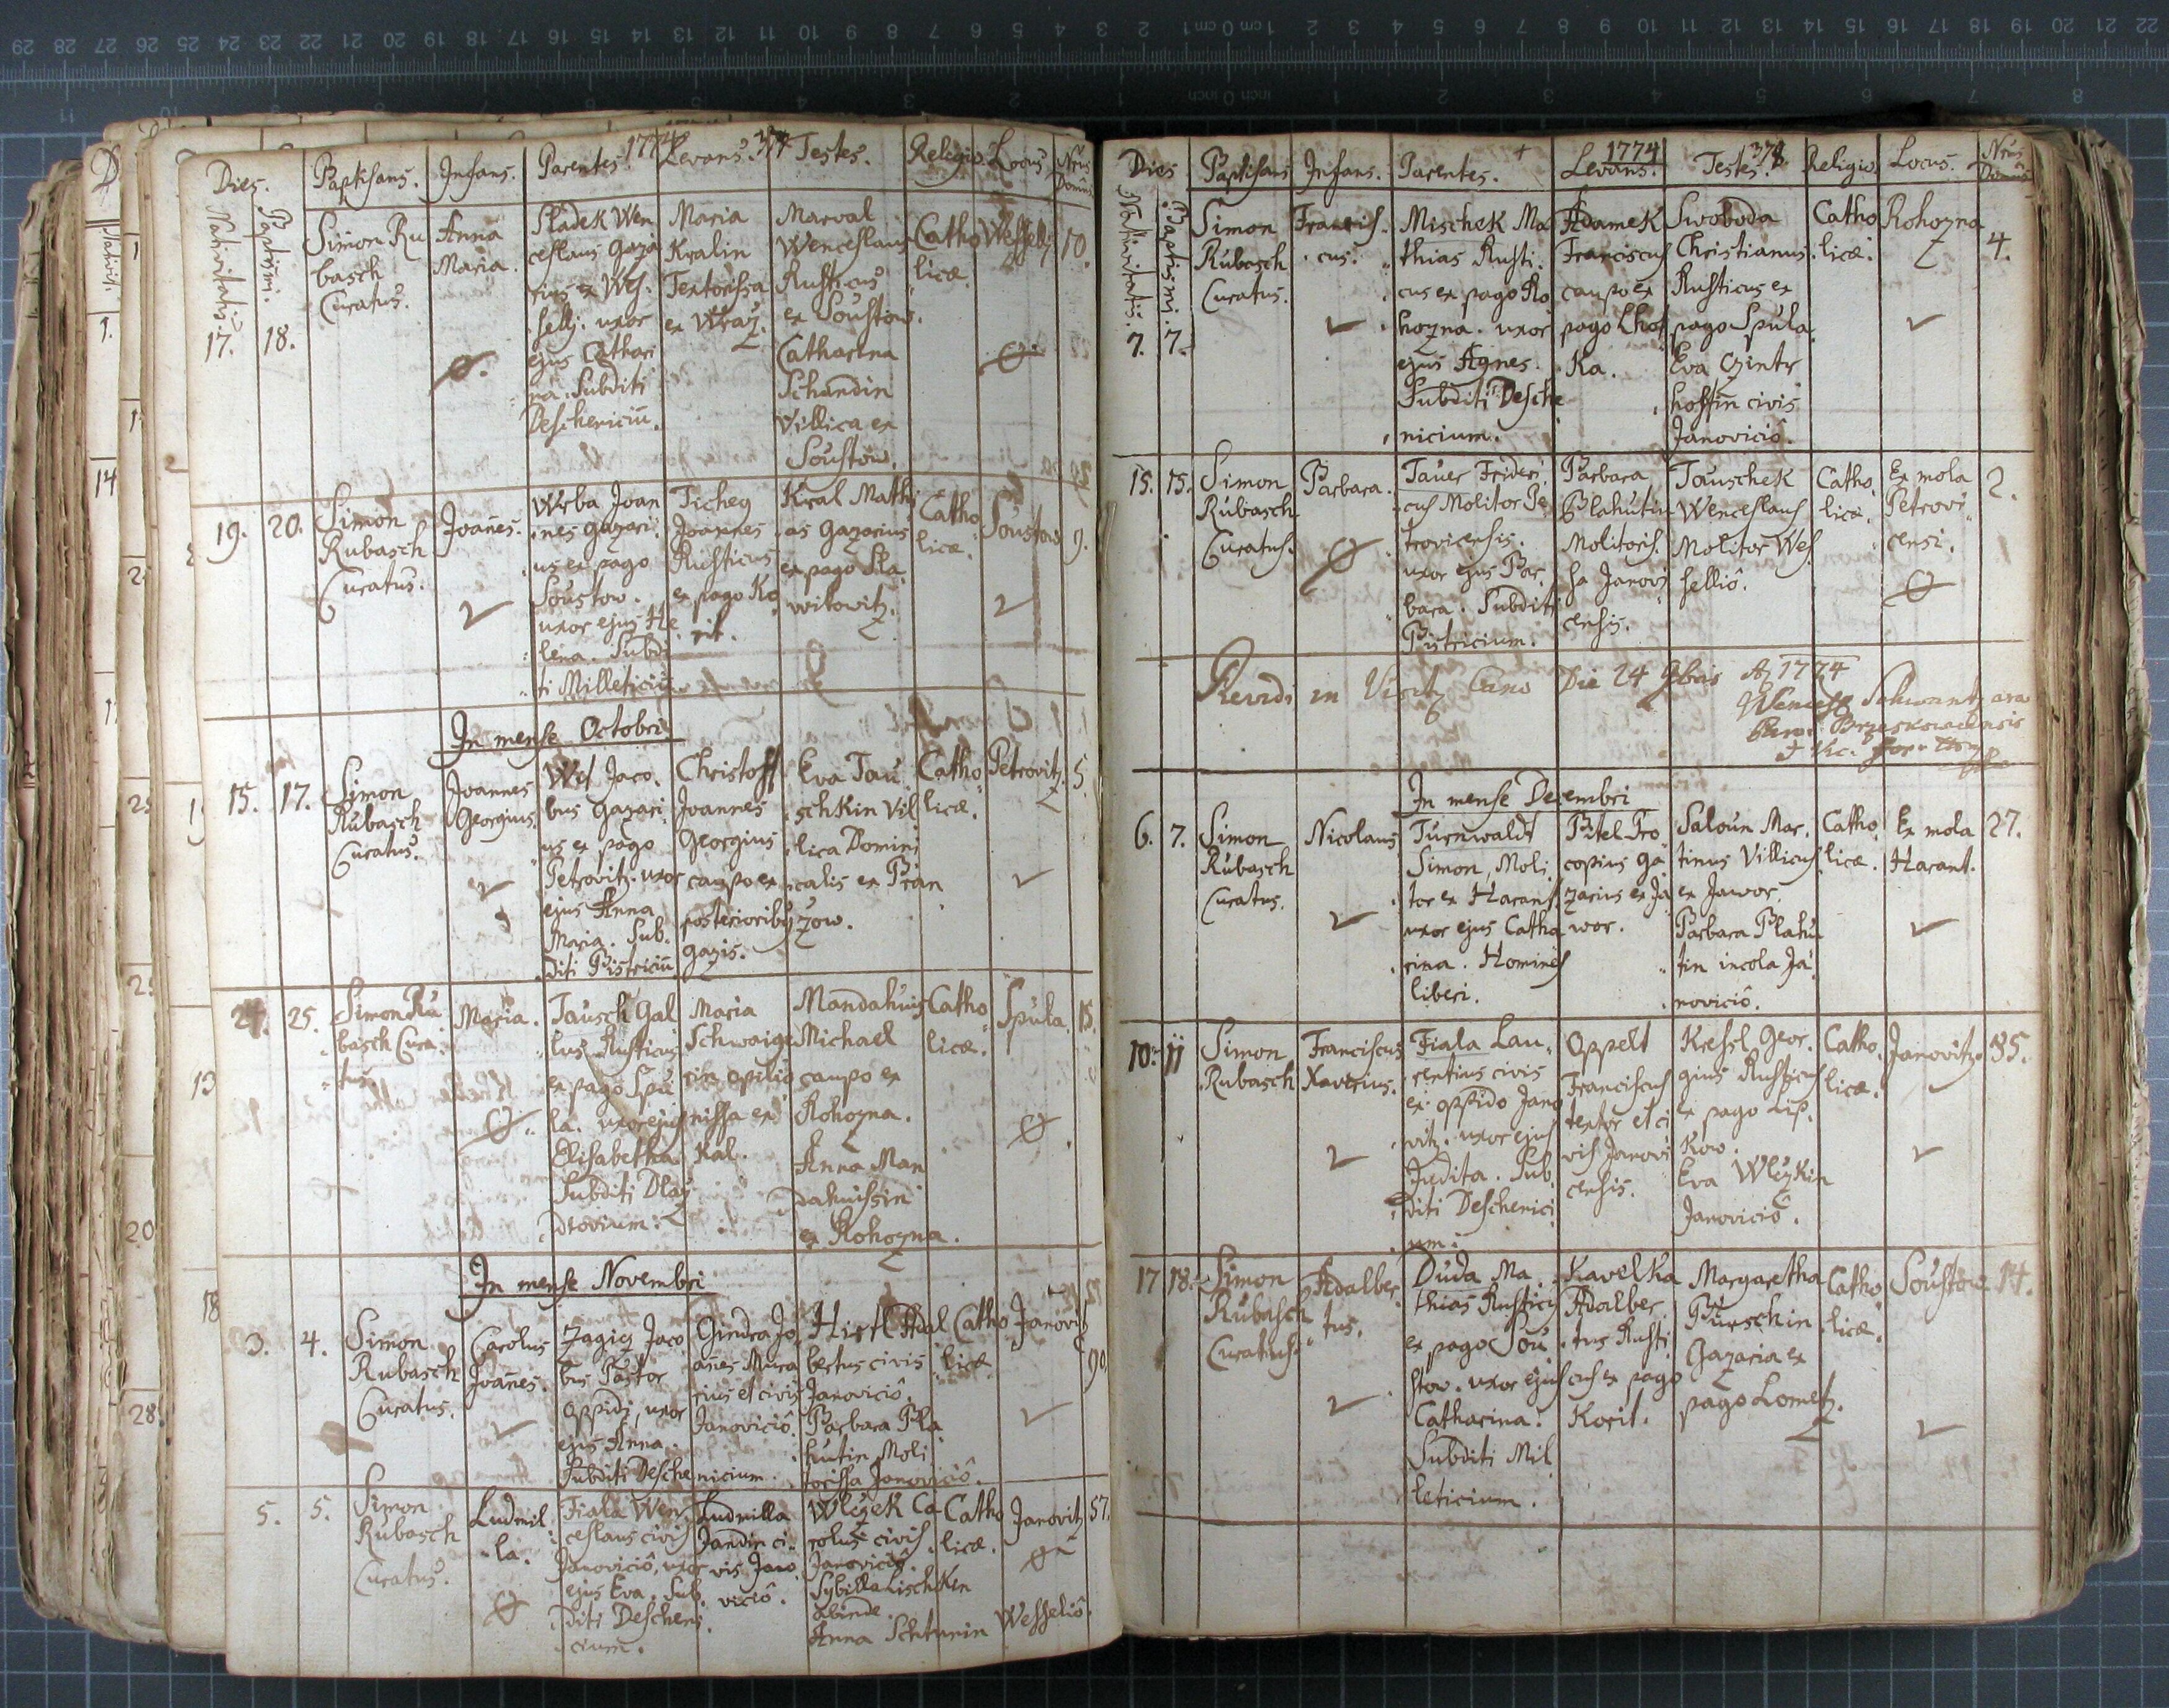 1774 374
Dies. Baptisans. Infans. Parentes. Levans. Testes. Religio. Locus Nrus Domus
Nativitatis. Baptismi.
17. 18.
Simon Ru
basch
Curatus.
Anna
Maria.
Sladek Wen
ceslaus Gaza
rius ex Wes.
sellj. uxor
ejus Cathari
na. Subditi
Descheniciũ.
Maria
Kralin
Textorissa
ex Wraz.
Marval
Wenceslaus
Rusticus
ex Soustow.
Catharina
Schandin
Villica ex
Soustow.
Catho
licæ.
Wesselj
10.
19. 20.
Simon
Rubasch
Curatus.
Joañes.
Wrba Joan
nes gazari.
us ex pago
Soustow.
uxor ejus He
lena. Subdi
ti Milleticiũ
Ticheg
Joannes
Rusticus
ex pago Ko
rit.
Kral Mathi
as Gazarius
ex pago Sla
witowitz.
Catho
licæ.
Soustow
9.
In mense Octobri
15. 17.
Simon
Rubasch
Curatus.
Joannes
Georgius.
Wes Jaco.
bus gazari.
us ex pago
Petrovitz. uxor
ejus Anna
Maria. Sub.
diti Bistriciũ
Christoff
Joannes
Georgius
caupo ex
posterioribus
gazis.
Eva Tau.
schkin Vil
lica Domini
calis ex Bran
zow.
Catho
licæ.
Petrovitz.
5.
24. 25.
Simon Ru
basch Cura.
tus.
Maria.
Tausch Gal
lus Rusticus
ex pago Spu
la. uxor ejus
Elisabetha
Subditi Dlaz
dtovium.
Maria
Schwaige
rin opilio
nissa ex
Kal.
Mandahuis
Michael
caupo ex
Rohozna.
Anna Man
dahuissin
ex Rohozna.
Catho
licæ.
Spula.
15.
In mense Novembri
3. 4.
Simon
Rubasch
Curatus.
Carolus
Joañes.
Jaco
bus Pastor
oppidi, uxor
ejus Anna.
Subditi Deschenicium.
Gindra Jo
añes Mura
rius et civis
Janoviciô.
Hirtl Adal
bertus civis
Janoviciô.
Barbara Bla
hutin Moli
torissa Janoviciô.
Catho
licæ
Janovitz
90.
5. 5.
Simon
Rubasch
Curatus.
Ludmil
la.
Fiala Wen
ceslaus civis
Janoviciô, uxor
ejus Eva. Sub.
diti Descheni.
cium.
Ludmilla
Jandin ci.
vis Jano
viciô.
Wlczek Ca
rolus civis
Janoviciô.
Sybilla Lischken
Anna Schturin Wesseliô.
Catho
licæ.
Janovitz
57.
1774 378.
Dies Baptisans Infans. Parentes. Levans. Testes. Religio. Locus. Nrus Domus
Nativitatis. Baptismi.
7. 7.
Simon
Rubasch
Curatus.
Francis.
cus.
Mischek Ma
thias Rusti.
cus ex pago Ro
hozna. uxor
ejus Agnes.
Subditi Desche
nicium.
Adamek
Franciscus
caupo ex
pago Lhot
ka.
Swoboda
Christianus.
Rusticus ex
pago Spula.
Eva Gintr
hoffin civis
Janoviciô.
Catho
licæ.
Rohozna
4.
15. 15.
Simon
Rubasch
Curatus.
Barbara.
Tauer Frideri.
cus Molitor Pe
trovicensis.
uxor ejus Bar.
bara. Subditi
Bistricium.
Barbara
Blahutin
Molitoris.
sa Janovi
censis.
Tauschek
Wenceslaus
Molitor Wes.
selliô.
Catho.
licæ.
Ex mola
Petrovi
censi.
2.
Revidi in Visitõe Cano Die 24 9bris Aõ 1774
In mense Decembri
6. 7.
Simon
Rubasch
Curatus.
Nicolaus
Turnwaldt
Simon, Moli.
tor ex Harant.
uxor ejus Catha
rina. Homines
liberi.
Bitel Pro
copius Ga
zarius ex Ja
wor.
Saloun Mar.
tinus Villicus
ex Jawor.
Barbara Blahu
tin incola Ja
noviciô.
Catho.
licæ.
Ex mola
Harant.
27.
10. 11
Simon
Rubasch
Franciscus
Xaverius.
Fiala Lau.
rentius civis
ex oppido Jano
vitz. uxor ejus
Judita. Sub.
diti Deschenici.
um.
Oppelt
Franciscus
textor et ci
vis Janovi
censis.
Kressl Geor.
gius Rusticus
ex pago Lip.
kow.
Eva Wlczkin
Janoviciô.
Catho.
licæ.
Janovitz.
35.
17 18.
Simon
Rubasch
Curatus.
Adalber
tus.
Duda Ma.
thias Rusticus
ex pago Sou
stow. uxor ejus
Catharina.
Subditi Mil
leticium.
Kavelka
Adalber.
tus Rusti
cus ex pago
Korit.
Margaretha
Burschin
Gazaria ex
pago Lometz.
Catho
licæ.
Soustow
14.